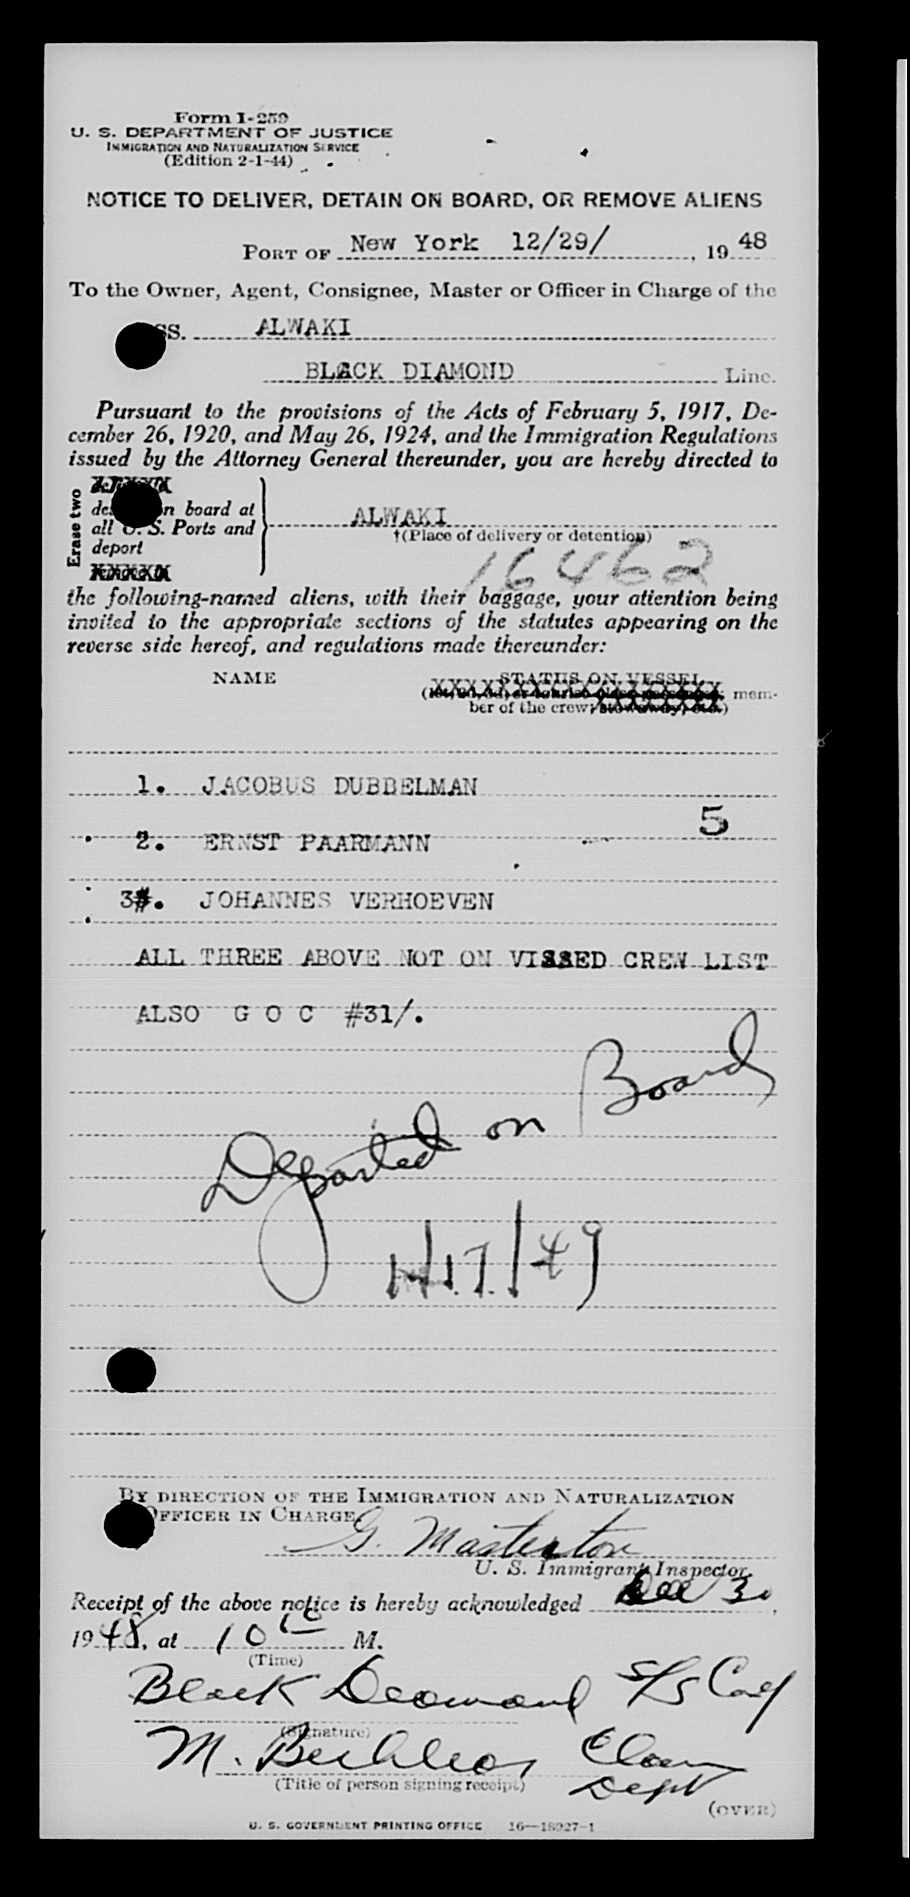 Form I-259
U. S. DEPARTMENT OF JUSTICE
IMMIGRATION AND NATURALIZATION SERVICE
(Edition 2-1-44)
NOTICE TO DELIVER, DETAIN ON BOARD, OR REMOVE ALIENS
PORT OF New York 12/29/, 1948
To the Owner, Agent, Consignee, Master or Officer in Charge of the
SS. ALWAKI
BLACK DIAMOND Line.
Pursuant to the provisions of the Acts of February 5, 1917, De-
cember 26, 1920, and May 26, 1924, and the Immigration Regulations
issued by the Attorney General thereunder, you are hereby directed to
Erase two
XXXXX
on board at
all U. S. Ports and
deport
XXXXX
ALWAKI
†(Place of delivery or detention)
16462
the following-named aliens, with their baggage, your attention being
invited to the appropriate sections of the statutes appearing on the
reverse side hereof, and regulations made thereunder:
NAME
STATUS ON VESSEL
mem-
ber of the crew
1. JACOBUS DUBBELMAN
5
2. ERNST PAARMANN
3#. JOHANNES VERHOEVEN
ALL THREE ABOVE NOT ON VISSED CREW LIST
ALSO G O C #31/.
Departed on Board
1/17/49
BY DIRECTION OF THE IMMIGRATION AND NATURALIZATION
OFFICER IN CHARGE
G. Masterton
U. S. Immigrant Inspector.
Receipt of the above notice is hereby acknowledged Dec 30,
1948, at 10 10 M.
(Time)
Black Diamond S/S Corp
(Signature)
M. Claim
Dept
(Title of person signing receipt)
(OVER)
U. S. GOVERNMENT PRINTING OFFICE 16—18927-1